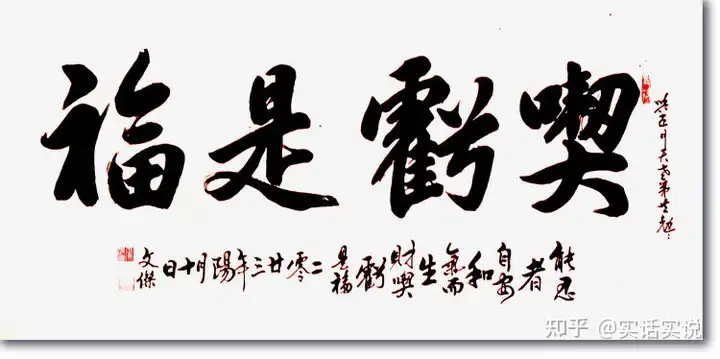 喫虧是福
能忍者自安和氣而生財喫虧是福二零廿三年陽月十日
文傑
知乎 @实话实说